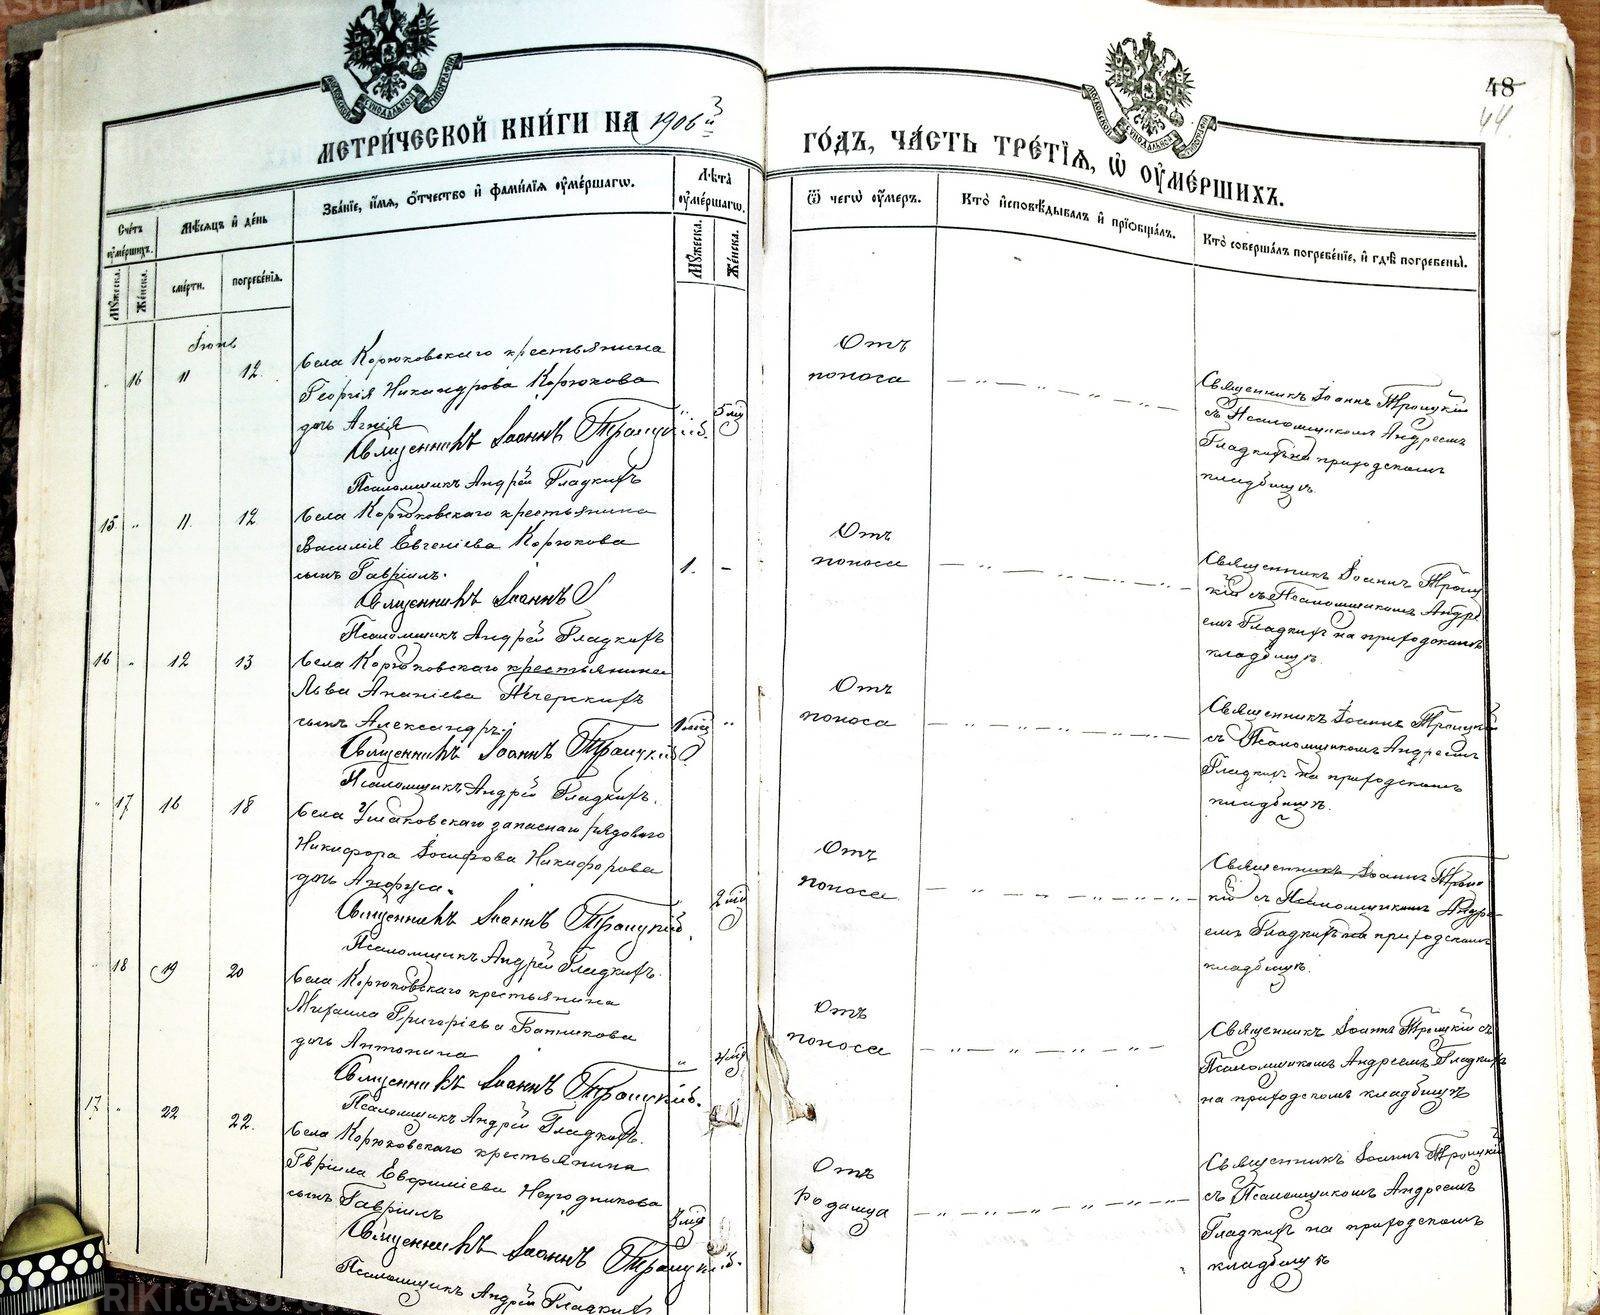 МЕТРИ́ЧЕСКОЙ КНИ́ГИ НА 1906й
ГО́ДЪ, ЧА́СТЬ ТРЕ́ТІѦ, Ѡ҆ ОУ҆МЕ́РШИХЪ.
48
44.
Сче́тъ оу҆ме́ршихъ.
Мѣ́сѧцъ и҆ де́нь
Зва́нїе, и҆́мѧ, ѻ҆́тчество и҆ фами́лїѧ оу҆ме́ршагѡ.
Лѣ́та оу҆ме́ршагѡ.
Ѿ чегѡ̀ оу҆́меръ.
Кто̀ и҆сповѣ́дывалъ и҆ прїѡбща́лъ.
Кто̀ соверша́лъ погребе́нїе, и҆ гдѣ̀ погребены̀.
Мꙋ́жеска.
Же́нска.
сме́рти.
погребе́нїѧ.
Мꙋ́жеска.
Же́нска.
Іюнь
16 11 12.
Села Корюковскаго крестьянина
Георгія Никандрова Корюкова
дочь Агнія
5 мѣ
Священникъ Іоаннъ Троицкій.
Псаломщикъ Андрей Гладкихъ
Отъ
поноса
Священникъ Іоаннъ Троицкій
съ Псаломщикомъ Андреемъ
Гладкихъ на приходскомъ
кладбищѣ.
15 " 11. 12
Села Корюковскаго крестьянина
Василія Евгеніева Корюкова
сынъ Гавріилъ.
1. -
Священникъ Іоаннъ
Псаломщикъ Андрей Гладкихъ
Отъ
поноса
Священникъ Іоаннъ Троиц
кій съ Псаломщикомъ Андре
емъ Гладкихъ на приходскомъ
кладбищѣ.
16 " 12 13
Села Корюковскаго крестьянина
Льва Ананіева Печерскихъ
сынъ Александръ.
1 мѣс "
Священникъ Іоаннъ Троицкій
Псаломщикъ Андрей Гладкихъ.
Отъ
поноса
Священникъ Іоаннъ Троицкій
съ Псаломщикомъ Андреемъ
Гладкихъ на приходскомъ
кладбищѣ.
" 17 16 18
Села Ушаковскаго запаснаго рядового
Никифора Іосифова Никифорова
дочь Анфуса.
" 2 мѣ
Священникъ Іоаннъ Троицкій.
Псаломщикъ Андрей Гладкихъ.
Отъ
поноса
Священникъ Іоаннъ Троиц
кій съ Псаломщикомъ Андре-
емъ Гладкихъ на приходскомъ
кладбищѣ.
" 18 19 20
Села Корюковскаго крестьянина
Михаила Григоріева Батникова
дочь Антонина
" 4 мѣ
Священникъ Іоаннъ Троицкій.
Псаломщикъ Андрей Гладкихъ.
Отъ
поноса
Священникъ Іоаннъ Троицкій съ
Псаломщикомъ Андреемъ Гладкихъ
на приходскомъ кладбищѣ
17 " 22 22.
Села Корюковскаго крестьянина
Гвріила Евфиміева Негодникова
сынъ Гавріилъ
3 мѣ
Священникъ Іоаннъ Троицкій.
Псаломщикъ Андрей Гладкихъ
Отъ
родимца
Священникъ Іоаннъ Троицкій
съ Псаломщикомъ Андреемъ
Гладкихъ на приходскомъ
кладбищѣ